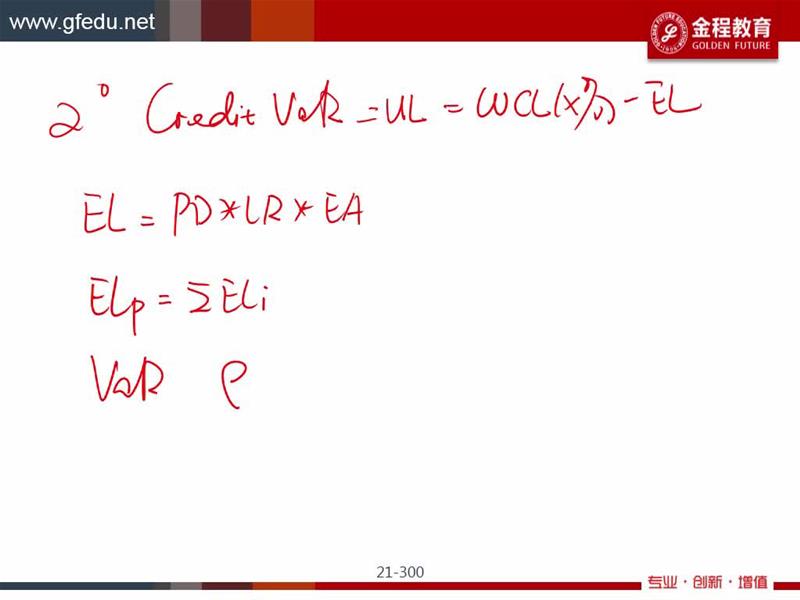 www.gfedu.net
金程教育
GOLDEN FUTURE
2° Credit VaR = UL = WCL(x%) - EL
EL = PD * LR * EA
ELp = ΣELi
VaR ρ
21-300
专业·创新·增值